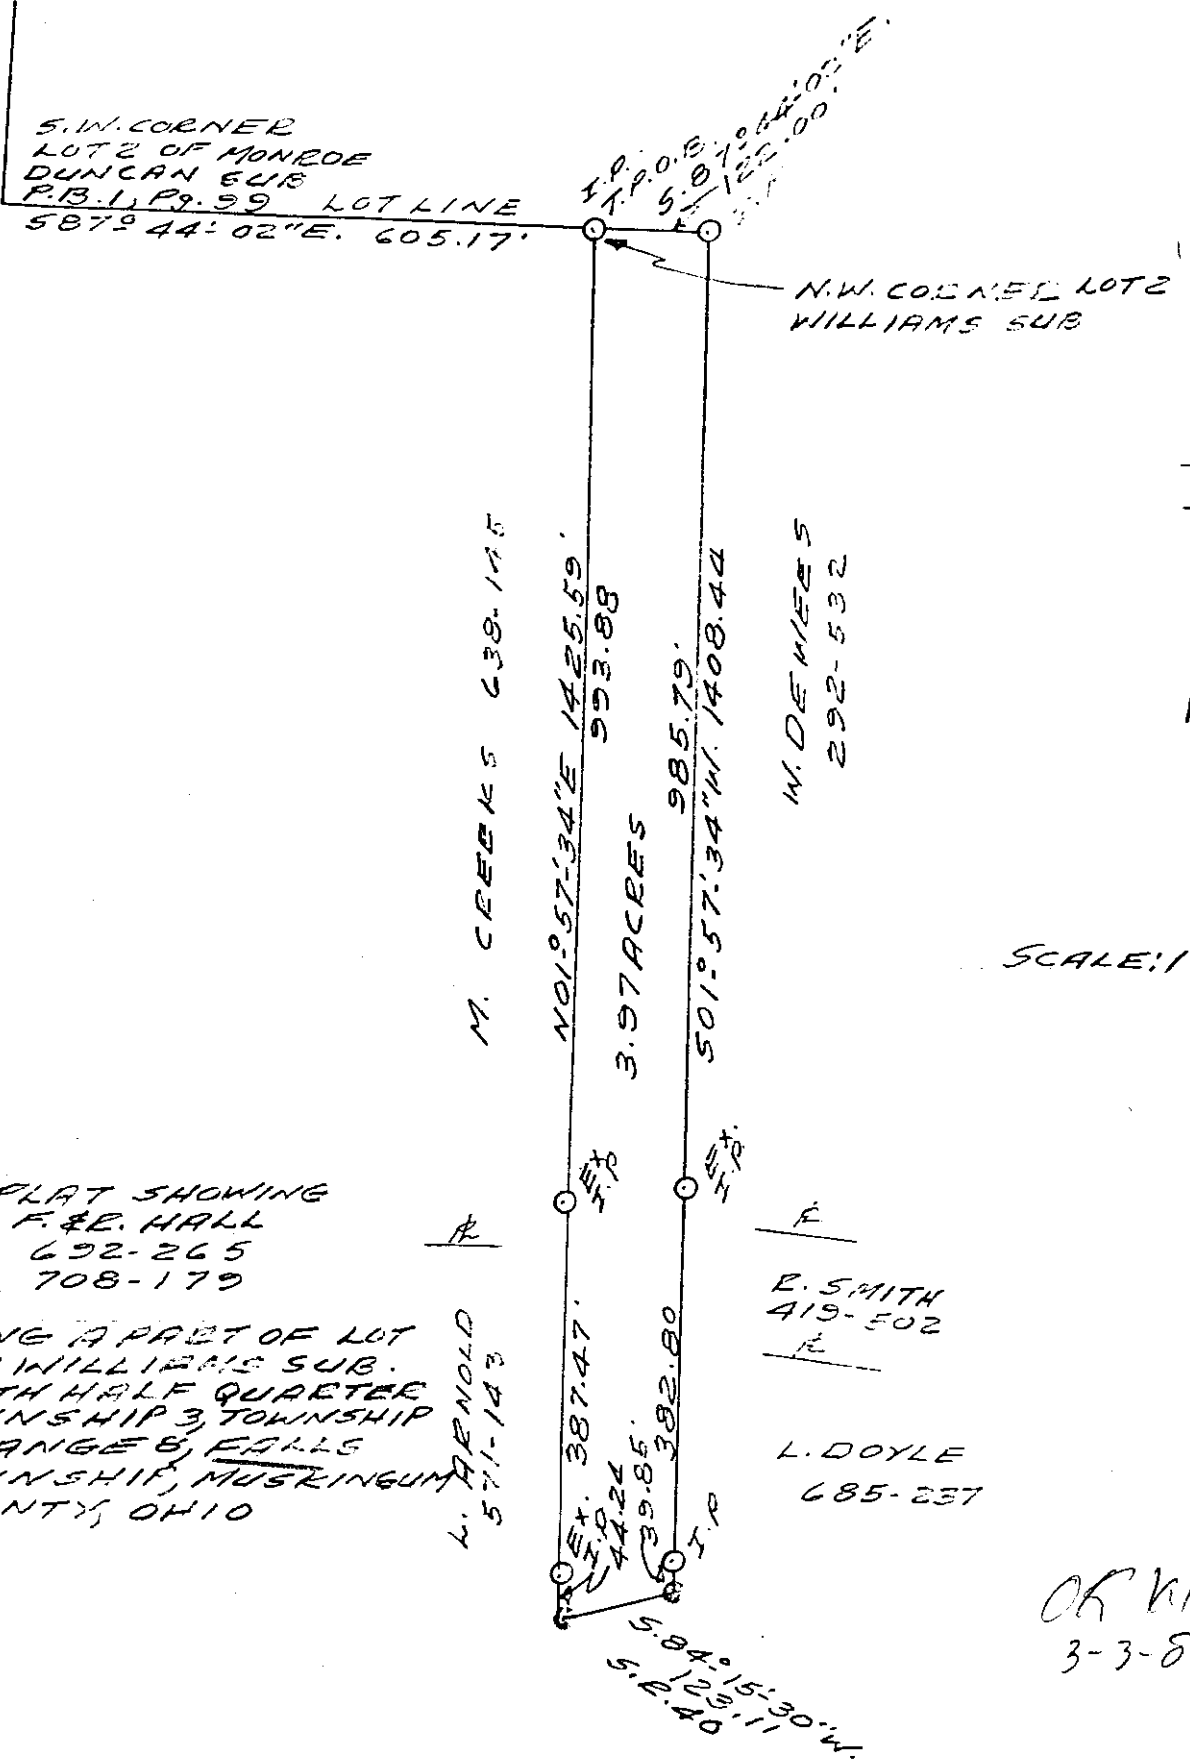 S.W. CORNER
LOT 2 OF MONROE
DUNCAN SUB
P.B. 1, Pg. 99 LOT LINE
S87° 44' 02" E. 605.17'
I.P.
T.P.O.B.
S.87° 44' 02" E.
122.00'
N.W. CORNER LOT 2
WILLIAMS SUB
M. CREEKS 638-145
N01° 57' 34" E 1425.59'
993.88
3.97 ACRES
985.79'
S01° 57' 34" W. 1408.44
W. DEWEES
292-532
SCALE: 1
EX.
I.P.
EX.
I.P.
PLAT SHOWING
F. & R. HALL
692-265
708-179
NG A PART OF LOT
WILLIAMS SUB.
TH HALF QUARTER
NSHIP 3, TOWNSHIP
ANGE 8, FALLS
NSHIP, MUSKINGUM
NTY, OHIO
L. ARNOLD
571-143
387.47'
382.80
R. SMITH
419-502
L. DOYLE
685-237
EX.
I.P.
44.24
39.85'
I.P.
S.84° 15' 30" W.
123.11
S.R. 40
OK
3-3-8